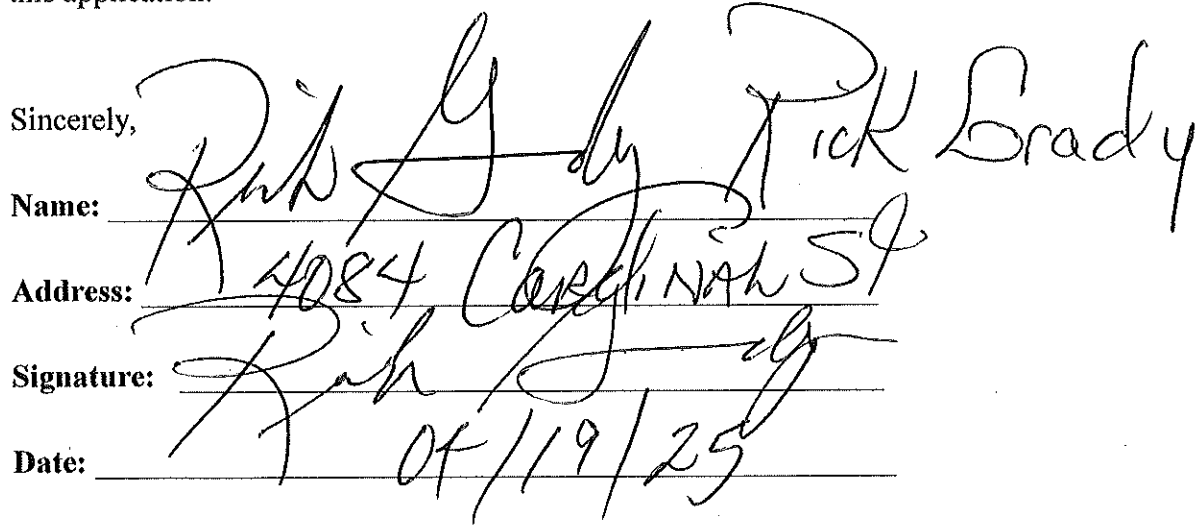 this application.
Sincerely,
Name: Rick Grady Rick Grady
Address: 4084 Cardinal St
Signature: Rick Grady
Date: 04/19/25